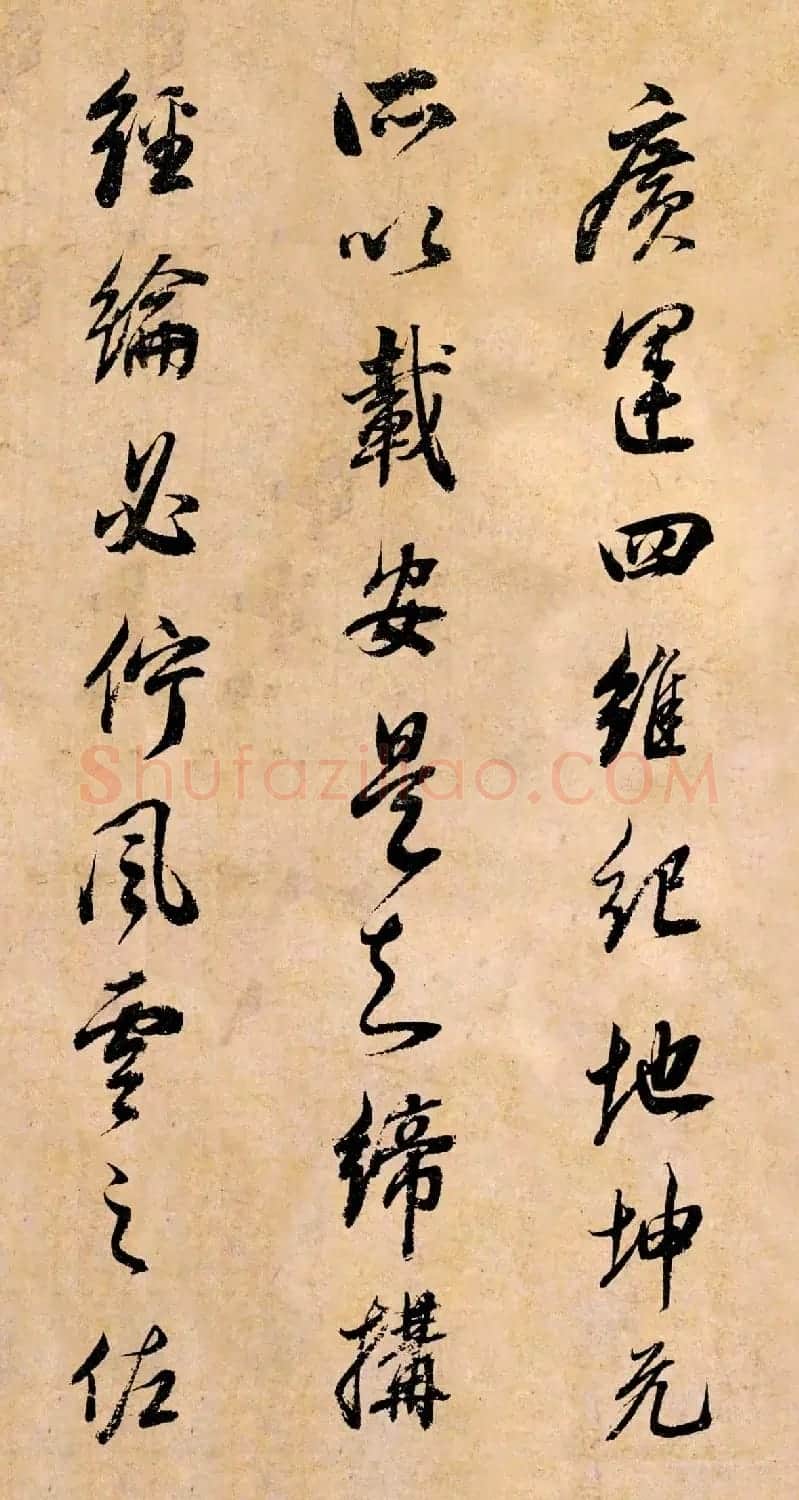 廣運四維紀地坤元
所以載安是知締搆
經綸必佇風雲之佐
Shufaziliao.COM